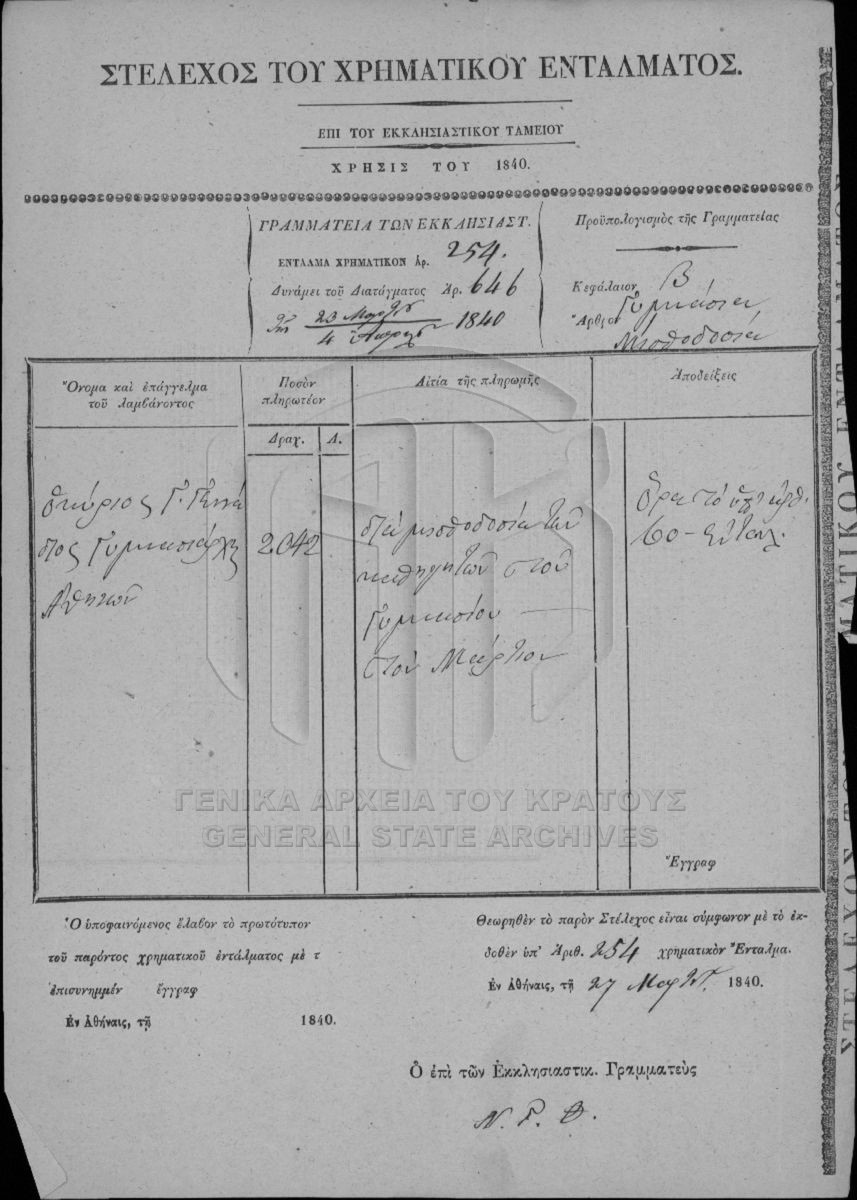 ΣΤΕΛΕΧΟΣ ΤΟΥ ΧΡΗΜΑΤΙΚΟΥ ΕΝΤΑΛΜΑΤΟΣ.
ΕΠΙ ΤΟΥ ΕΚΚΛΗΣΙΑΣΤΙΚΟΥ ΤΑΜΕΙΟΥ
ΧΡΗΣΙΣ ΤΟΥ 1840.
ΓΡΑΜΜΑΤΕΙΑ ΤΩΝ ΕΚΚΛΗΣΙΑΣΤ.
ΕΝΤΑΛΜΑ ΧΡΗΜΑΤΙΚΟΝ Ἀρ. 254.
Δυνάμει τοῦ Διατάγματος Ἀρ. 646
τῆς 23 Μαρτ
4 1840
Προϋπολογισμὸς τῆς Γραμματείας
Κεφάλαιον Β
Ἄρθρον Γυμνάσια
Μισθοδοσία
Ὄνομα καὶ ἐπάγγελμα
τοῦ λαμβάνοντος
Ποσὸν
πληρωτέον
Αἰτία τῆς πληρωμῆς
Ἀποδείξεις
Δραχ. Λ.
ὁ κύριος Γ. Γεννά
διος Γυμνασιάρχης
Ἀθηνῶν
2042
διὰ μισθοδοσίαν τῶν
καθηγητῶν τοῦ
Γυμνασίου
τὸν Μάρτιον
Ὅρα τὸ ὑπ' ἀριθ.
60
Ἔγγραφ
Ὁ ὑποφαινόμενος ἔλαβον τὸ πρωτότυπον
τοῦ παρόντος χρηματικοῦ ἐντάλματος μὲ τ
ἐπισυνημμέν ἔγγραφ
Ἐν Ἀθήναις, τῇ 1840.
Θεωρηθὲν τὸ παρὸν Στέλεχος εἶναι σύμφωνον μὲ τὸ ἐκ-
δοθὲν ὑπ' Ἀριθ. 254 χρηματικὸν Ἔνταλμα.
Ἐν Ἀθήναις, τῇ 27 Μαρτ. 1840.
Ὁ ἐπὶ τῶν Ἐκκλησιαστικ. Γραμματεὺς
Ν. Γ. Θ.
ΓΕΝΙΚΑ ΑΡΧΕΙΑ ΤΟΥ ΚΡΑΤΟΥΣ
GENERAL STATE ARCHIVES